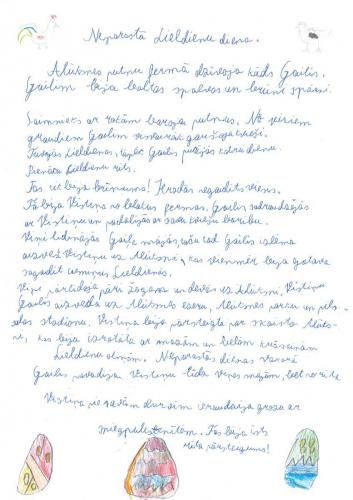 Neparastā Lieldienu diena.
Alūksnes putnu fermā dzīvoja kāds Gailis.
Gailim bija baltas spalvas un brūni spārni.
Saimnieks ar rokām baroja putnus. No visiem
graudiem Gailim vislabāk garšoja kvieši.
Tuvojās Lieldienas, tāpēc Gailis pucējās katru dienu.
Pienāca Lieldienu rīts.
Tas rīt bija brīnums! Ieradās negaidīts viesis.
Tā bija Vistiņa no blakus fermas. Gailis sadraudzējās
ar Vistiņu un padalījās ar savu kviešu barību.
Viņi mājās, taču tad Gailis izlēma
aizvest Vistiņu uz Alūksni, kas vienmēr bija gatava
sagaidīt ciemiņus Lieldienās.
Viņi pārlidoja pāri žogam un devās uz Alūksni. Vistiņu
Gailis aizveda uz Alūksnes ezeru, Alūksnes parku un pils-
ētas stadionu. Vistiņa bija pārsteigta par skaisto Alūks-
ni, kas bija izrotāta ar mazām un lielām krāsainām
Lieldienu olām. Neparastās dienas vakarā
Gailis pavadīja Vistiņu līdz viņas mājām, bet no rīta
Vistiņa pie savām durvīm ieraudzīja grozu ar
. Tas bija īsts
pārsteigums!